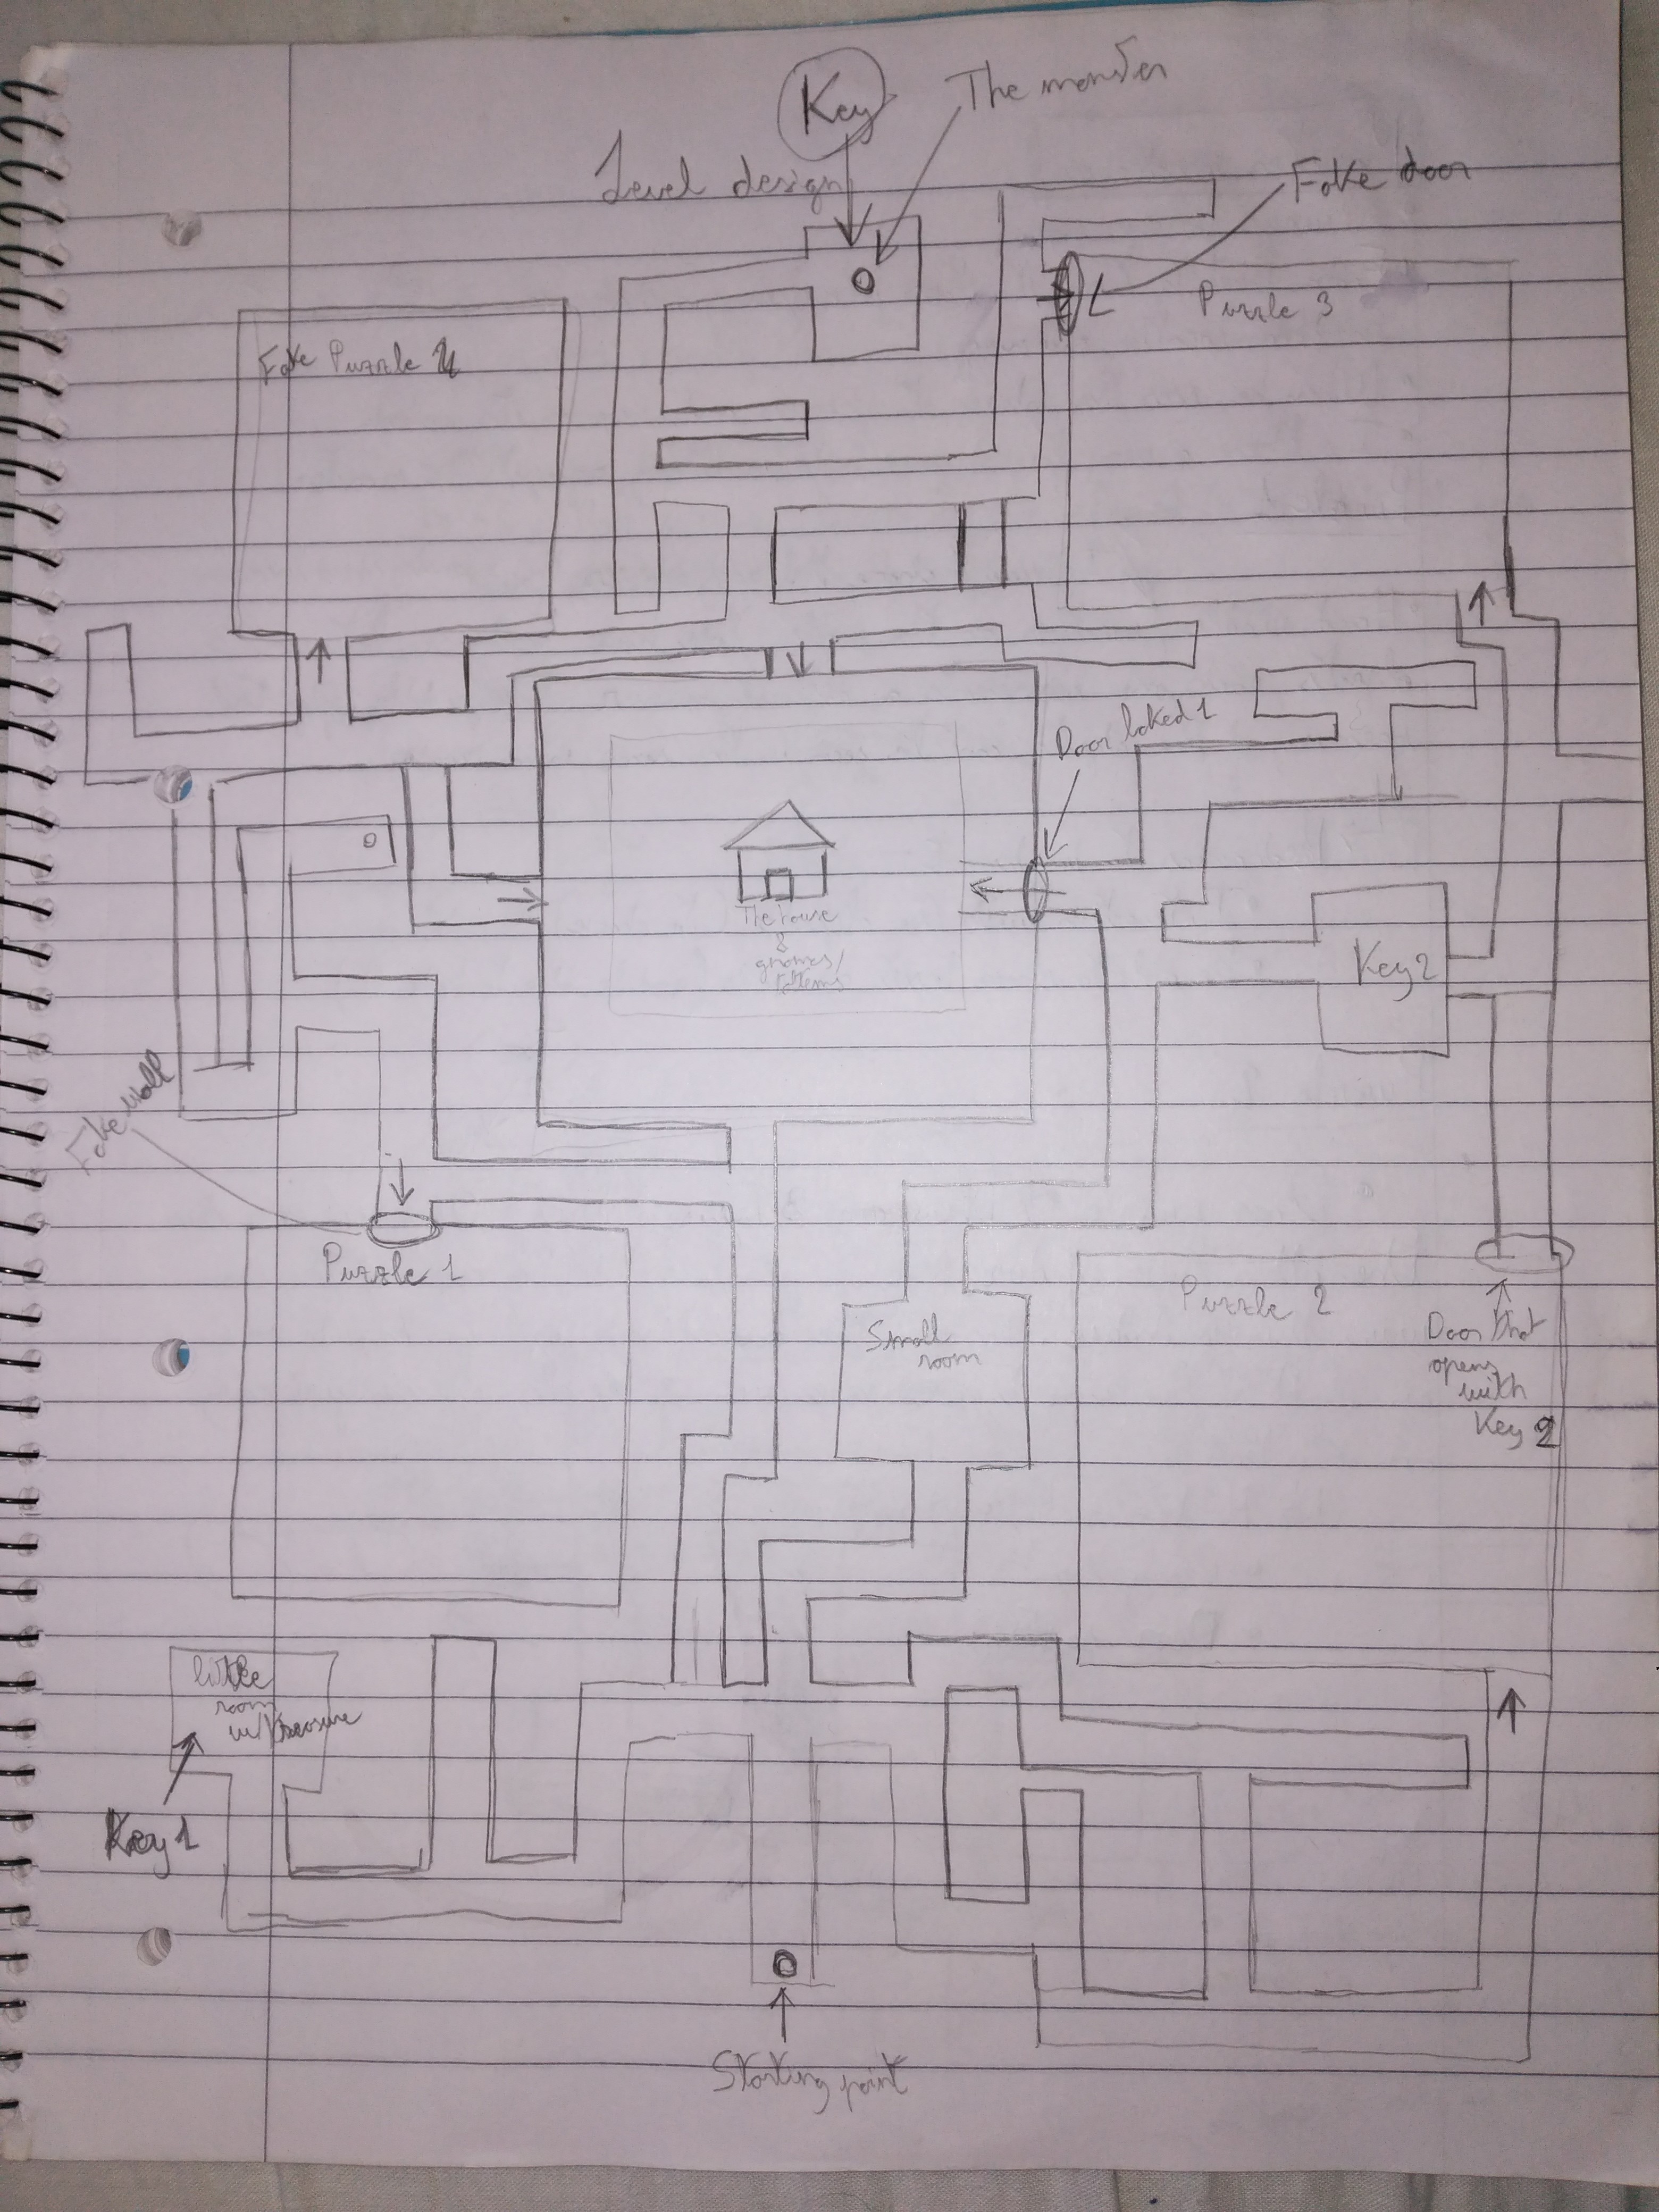 Key
The monster
Level design
Fake door
Puzzle 3
Fake Puzzle 4
Door locked 1
The house
&
gnomes/
totems
Key 2
Fake wall
Puzzle 1
Puzzle 2
Small
room
Door that
opens
with
Key 2
little
room
w/treasure
Key 1
Starting point